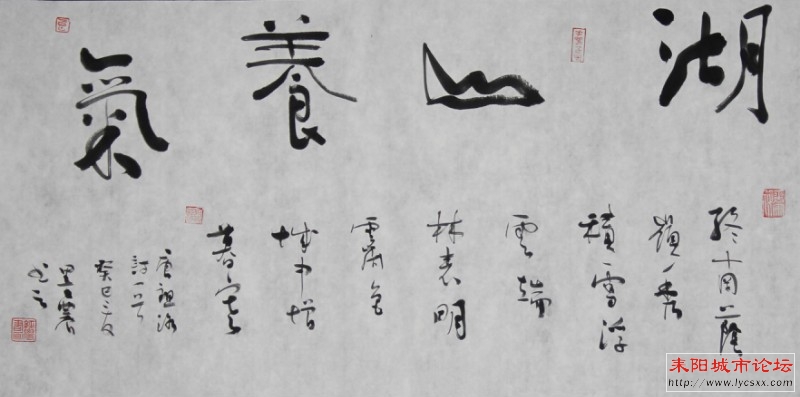 湖山養氣
終南陰
嶺秀
積雪浮
雲端
林表明
霽色
城中增
暮寒
唐祖詠
詩一首
癸巳
耒阳城市论坛
http://www.lycsxx.com